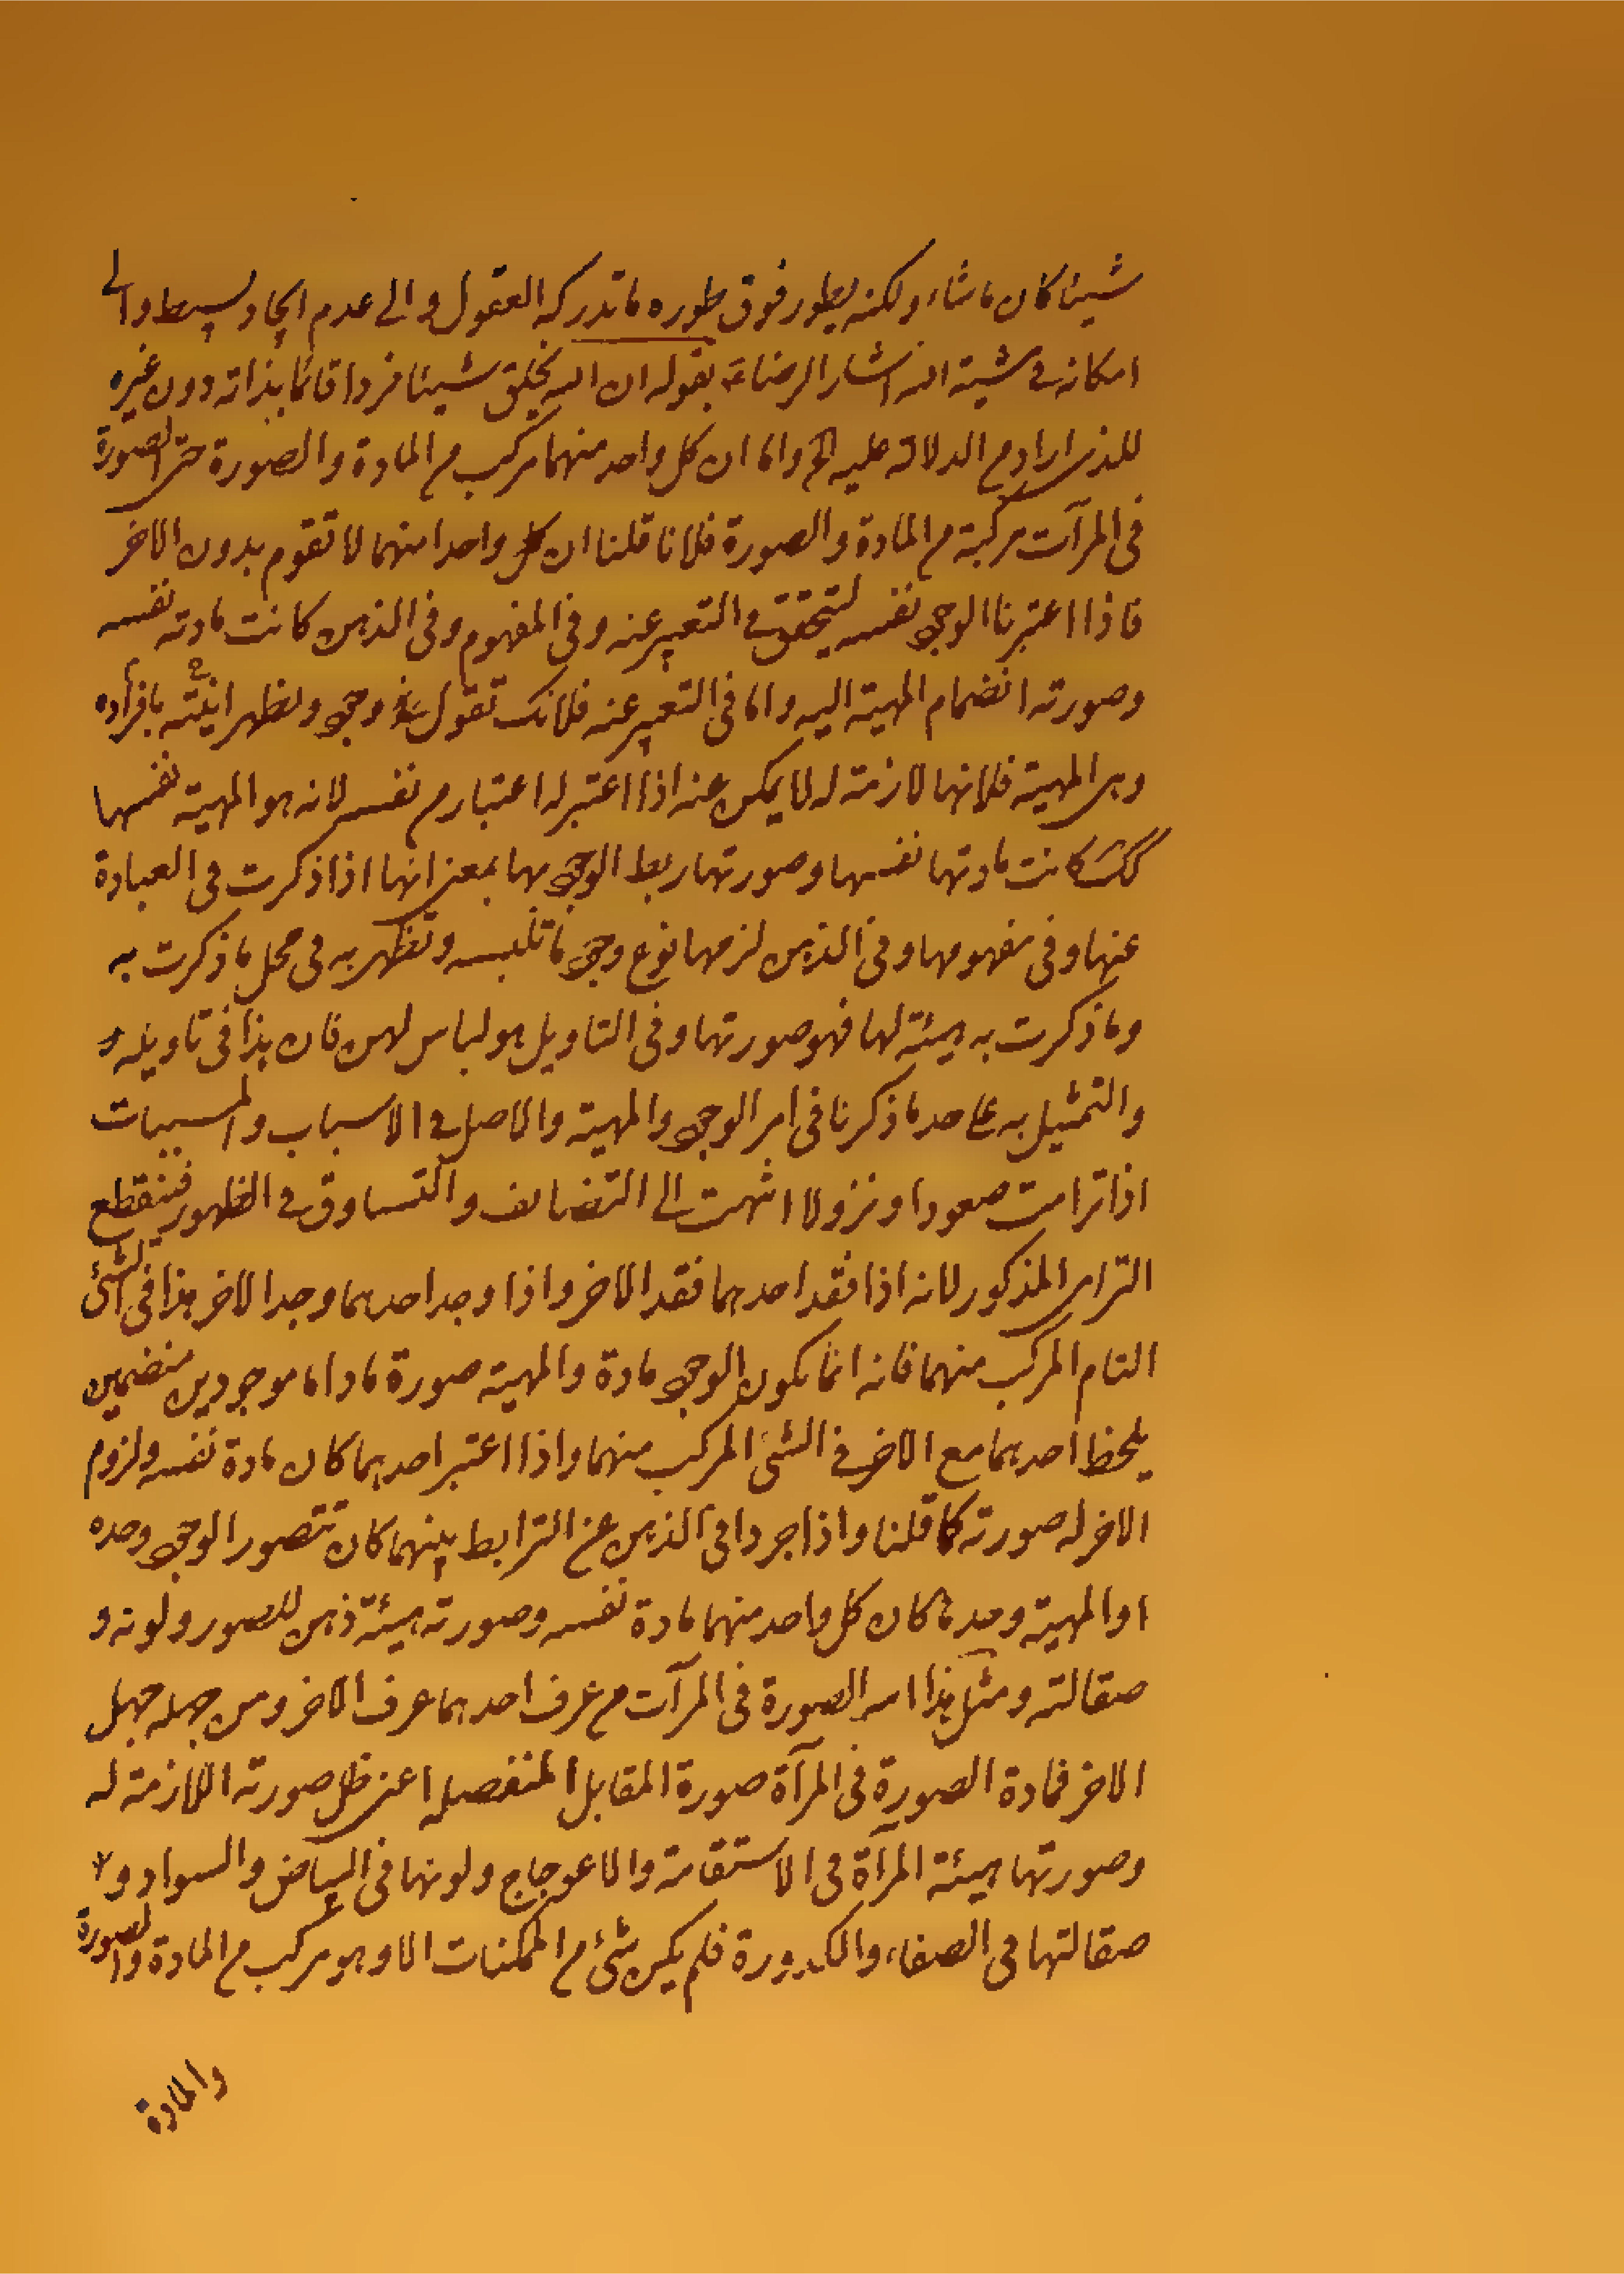 شيئا كان ما شاء ولكنه بطور فوق طوره ما تدركه العقول والى عدم ايجاد بسيط والى
امكانه فى مشية الله اشار الرضاع بقوله ان الله لم يخلق شيئا فردا قائما بذاته دون غيره
للذى اراد من الدلالة عليه الخ واما ان كل واحد منهما مركب من المادة والصورة حتى الصورة
فى المرآت مركبة من المادة والصورة فلانا قلنا ان كل واحدا منهما لا تقوم بدون الاخر
فاذا اعتبرنا الوجو نفسه ليتحقق فى التعبير عنه وفى المفهوم وفى الذهن كانت مادته نفسه
وصورته انضمام المهية اليه واما فى التعبير عنه فلانك تقول وجو ويظهر انيته بافراده
وهى المهية فلانها لازمة له لا يمكن عنه اذا اعتبر له اعتبار من نفسه لانه هو المهية نفسها
كك كانت مادتها نفسها وصورتها ربط الوجو بها بمعنى انها اذا ذكرت فى العبادة
عنها وفى مفهومها وفى الذهن لزمها نوع وجو ما تلبسه وتظهر به فى محل ما ذكرت به
وما ذكرت به هيئة لها فهو صورتها وفى التاويل هو لباس لهن فان هذا فى تاويله
والتمثيل به على حد ما ذكرنا فى امر الوجو والمهية والاصل فى الاسباب والمسببات
اذا ترامت صعودا ونزولا انتهت الى التضايف والتساوق فى الظهور فينقطع
الترامى المذكور لانه اذا فقد احدهما فقد الاخر واذا وجد احدهما وجد الاخر هذا فى الشئ
التام المركب منهما فانه انما يكون الوجو مادة والمهية صورة ما داما موجودين منضمين
يلحظ احدهما مع الاخر فى الشئ المركب منهما واذا اعتبر احدهما كان مادة نفسه ولزوم
الاخر له صورته كما قلنا واذا جردا فى الذهن عن الترابط بينهما كان تتصور الوجو وحده
او المهية وحدها كان كل واحد منهما مادة نفسه وصورته هيئة ذهن للصور ولونه و
صقالته ومثل هذا امر الصورة فى المرآت من عرف احدهما عرف الاخر ومن جهله جهل
الاخر فمادة الصورة فى المرآة صورة المقابل المنفصله اعنى ظل صورته اللازمة له
وصورتها هيئة المرآة فى الاستقامة والاعوجاج ولونها فى البياض والسواد و
صقالتها فى الصفاء والكدورة فلم يكن شئ من الممكنات الا وهو مركب من المادة والصورة
والمادة